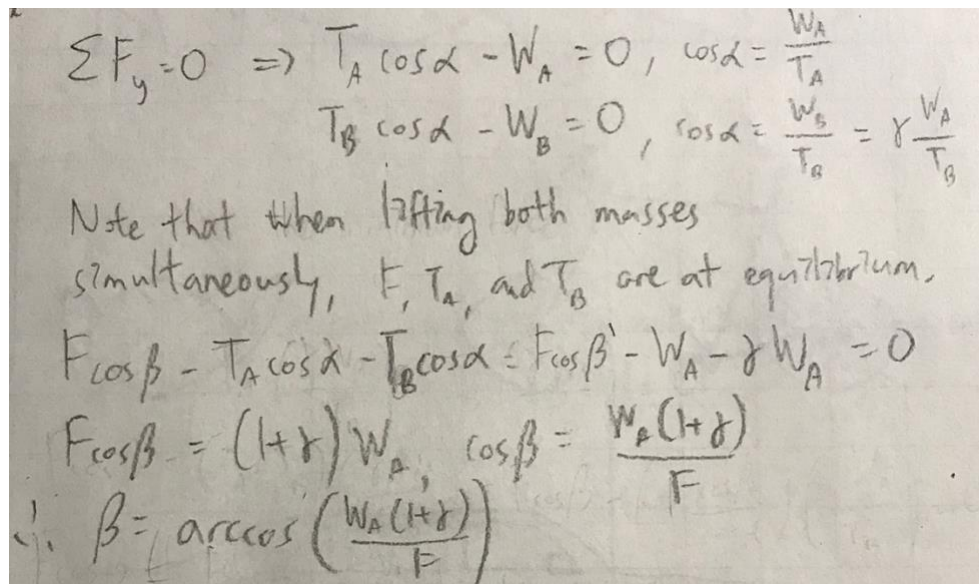 ΣF_y = 0 => T_A cosα - W_A = 0, cosα = W_A/T_A
T_B cosα - W_B = 0, cosα = W_B/T_B = γ W_A/T_B
Note that when lifting both masses
simultaneously, F, T_A, and T_B are at equilibrium.
F cosβ - T_A cosα - T_B cosα = F cosβ - W_A - γW_A = 0
F cosβ = (1+γ) W_A, cosβ = W_A(1+γ)/F
∴ β = arccos(W_A(1+γ)/F)